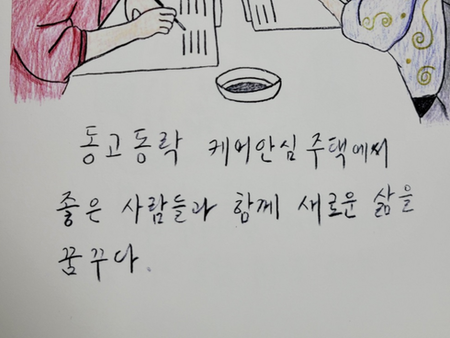 동고동락 케어안심주택에서
좋은 사람들과 함께 새로운 삶을
꿈꾸다.